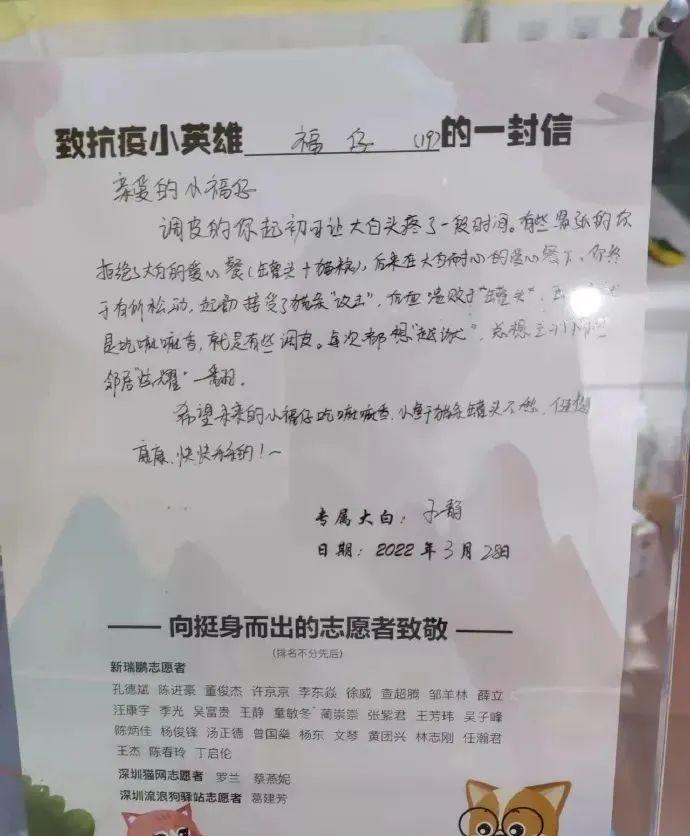 致抗疫小英雄 福仔 (19) 的一封信
亲爱的小福仔
调皮的你起初可让大白头疼了一段时间。有些紧张的你
拒绝了大白的爱心餐(罐头+猫粮)，后来在大白耐心的爱心餐下，你终
于有所松动，起初接受了猫条"攻击"，后面溃败于"罐头"，
是吃嘛嘛香，就是有些调皮。每次都想"越狱"，总想
邻居"炫耀"一翻。
希望未来的小福仔吃嘛嘛香，小鱼干猫条罐头不愁，
健康、快快乐乐的！~
专属大白：王静
日期：2022年3月28日
向挺身而出的志愿者致敬
(排名不分先后)
新瑞鹏志愿者
孔德斌 陈进豪 董俊杰 许京京 李东焱 徐威 查超腾 邹羊林 薛立
汪康宇 季光 吴富贵 王静 童敏冬 蔺崇崇 张紫君 王芳玮 吴子峰
陈炳佳 杨俊锋 汤正德 曾国燊 杨东 文琴 黄团兴 林志刚 任瀚君
王杰 陈春玲 丁启伦
深圳猫网志愿者 罗兰 蔡燕妮
深圳流浪狗驿站志愿者 葛建芳